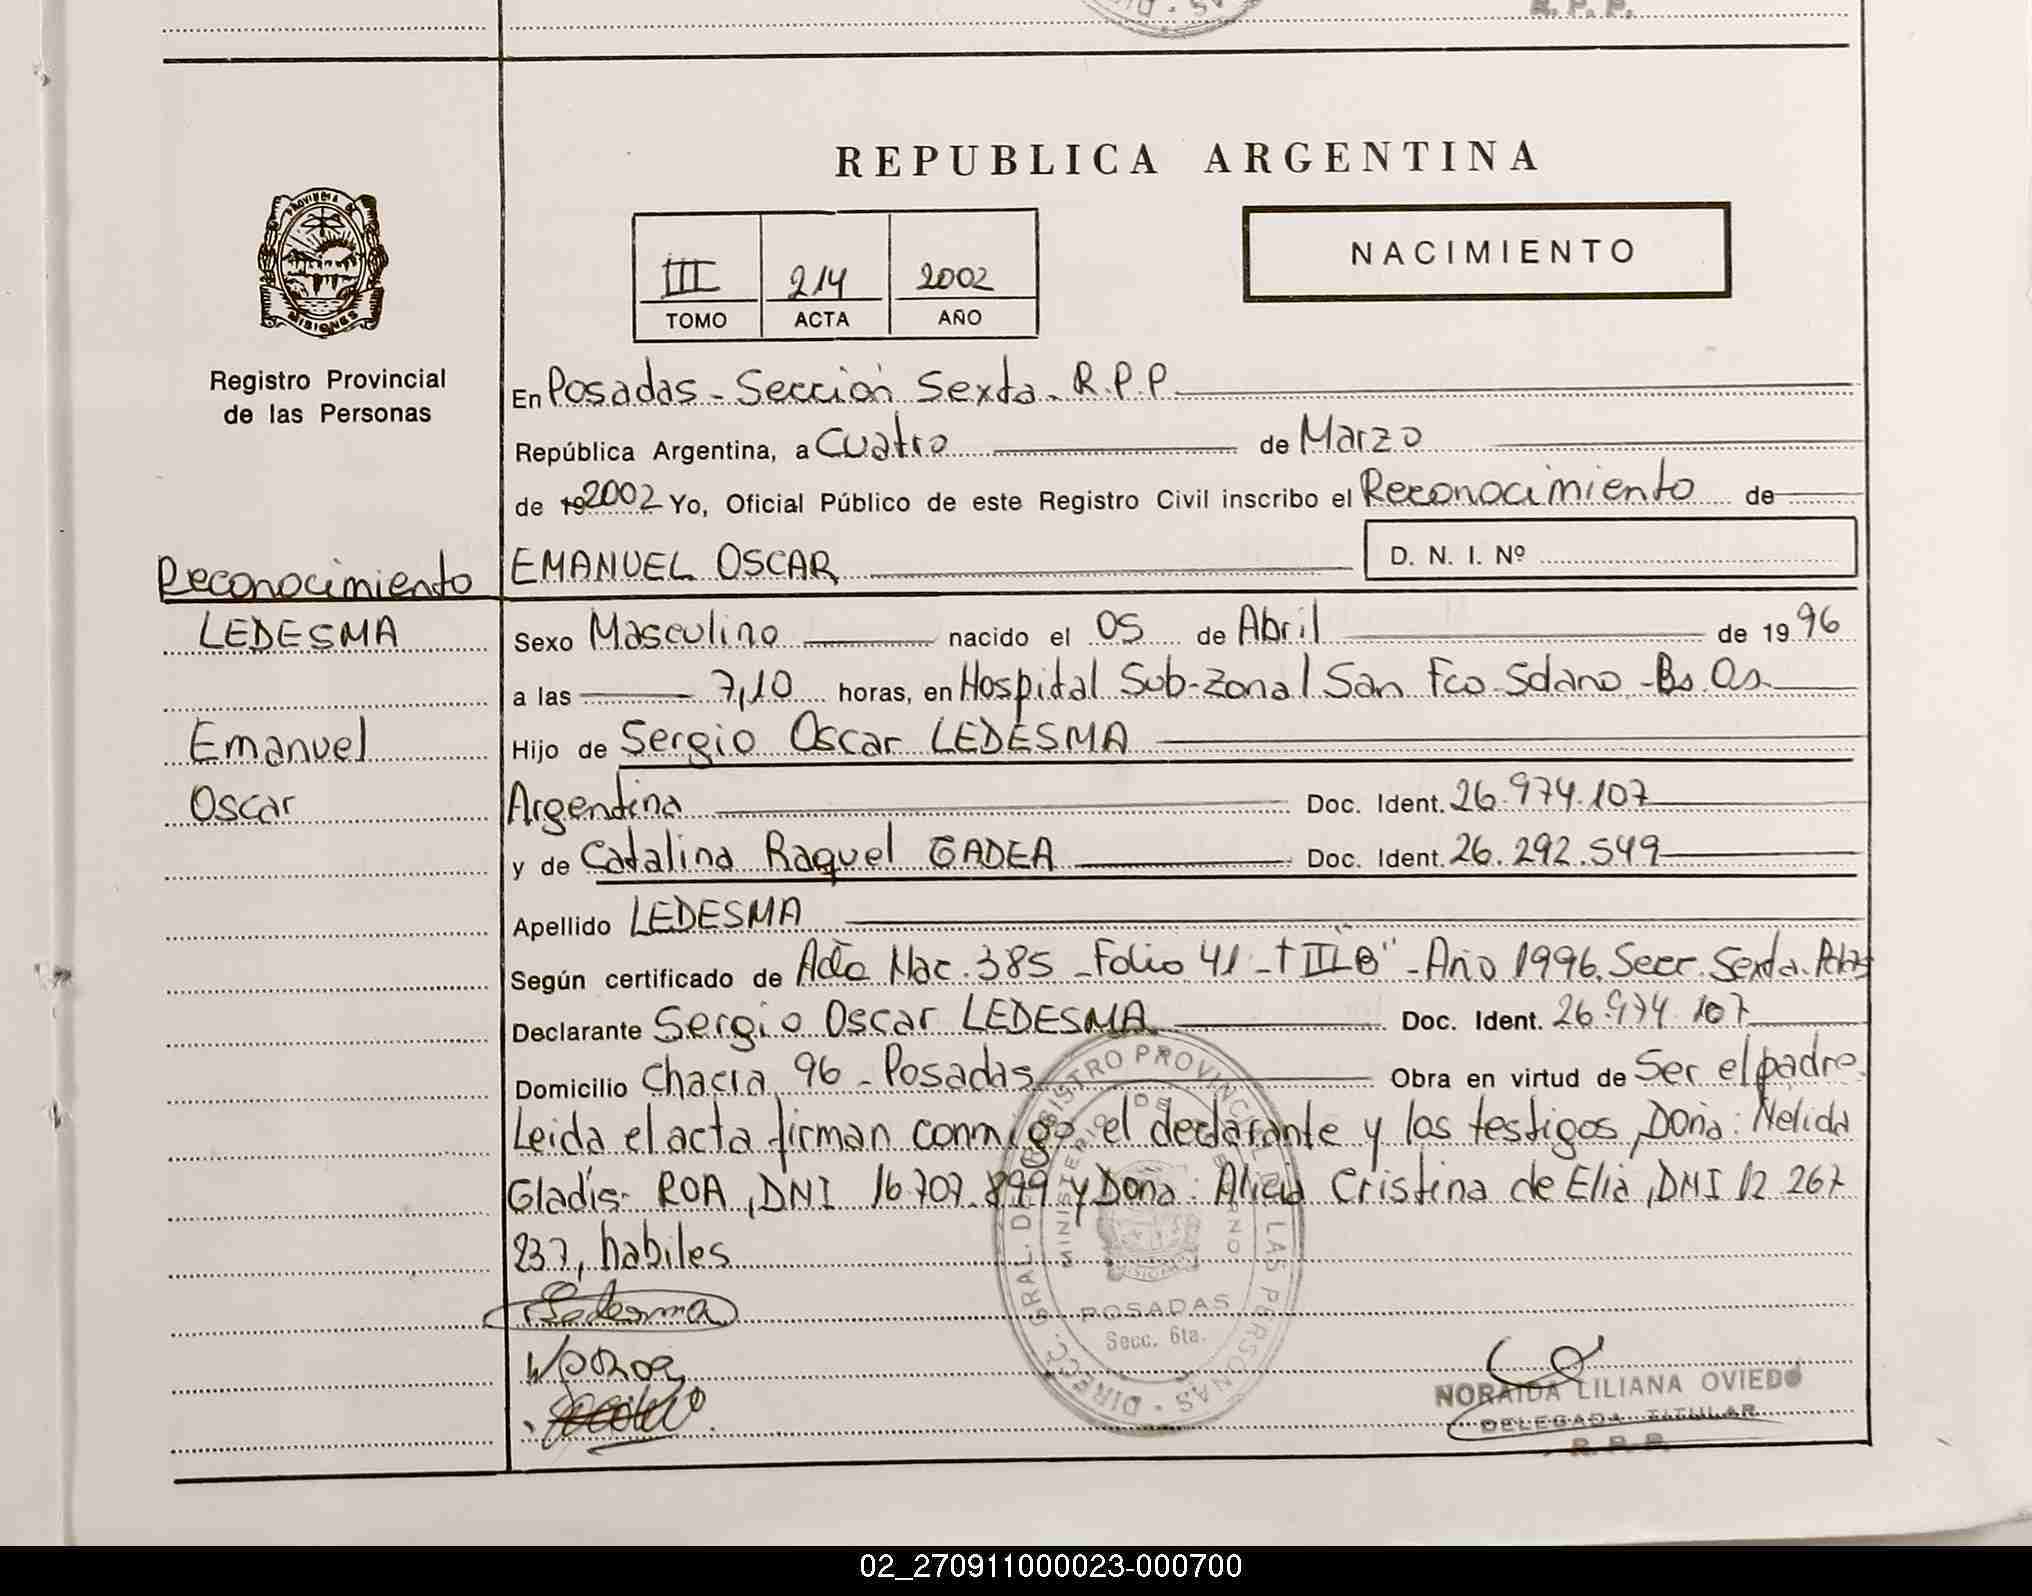 R. P. P.
REPUBLICA ARGENTINA
PROVINCIA DE
MISIONES
Registro Provincial
de las Personas
III 214 2002
TOMO ACTA AÑO
NACIMIENTO
En Posadas - Sección Sexta - R.P.P.
República Argentina, a Cuatro de Marzo
de 19 2002 Yo, Oficial Público de este Registro Civil inscribo el Reconocimiento de
EMANUEL OSCAR D. N. I. Nº
Reconocimiento
LEDESMA
Emanuel
Oscar
Sexo Masculino nacido el 05 de Abril de 1996
a las 7,10 horas, en Hospital Sub-Zonal San Fco Solano - Bs. As.
Hijo de Sergio Oscar LEDESMA
Argentina Doc. Ident. 26.974.107
y de Catalina Raquel GADEA Doc. Ident. 26.292.549
Apellido LEDESMA
Según certificado de Acta Nac. 385 - Folio 41 - T II "B" - Año 1996. Secc. Sexta - Pdas
Declarante Sergio Oscar LEDESMA Doc. Ident. 26.974.107
Domicilio Chacra 96 - Posadas Obra en virtud de Ser el padre.
Leida el acta firman conmigo el declarante y los testigos, Doña: Nelida
Gladis ROA, DNI 16.707.899 y Doña: Alicia Cristina de Elia, DNI 12 267
237, habiles
Ledesma
DIRECC. GRAL. DEL REGISTRO PROVINCIAL DE LAS PERSONAS
MINISTERIO DE GOBIERNO
POSADAS
Secc. 6ta.
NORAIDA LILIANA OVIEDO
DELEGADA TITULAR
R. P. P.
02_270911000023-000700